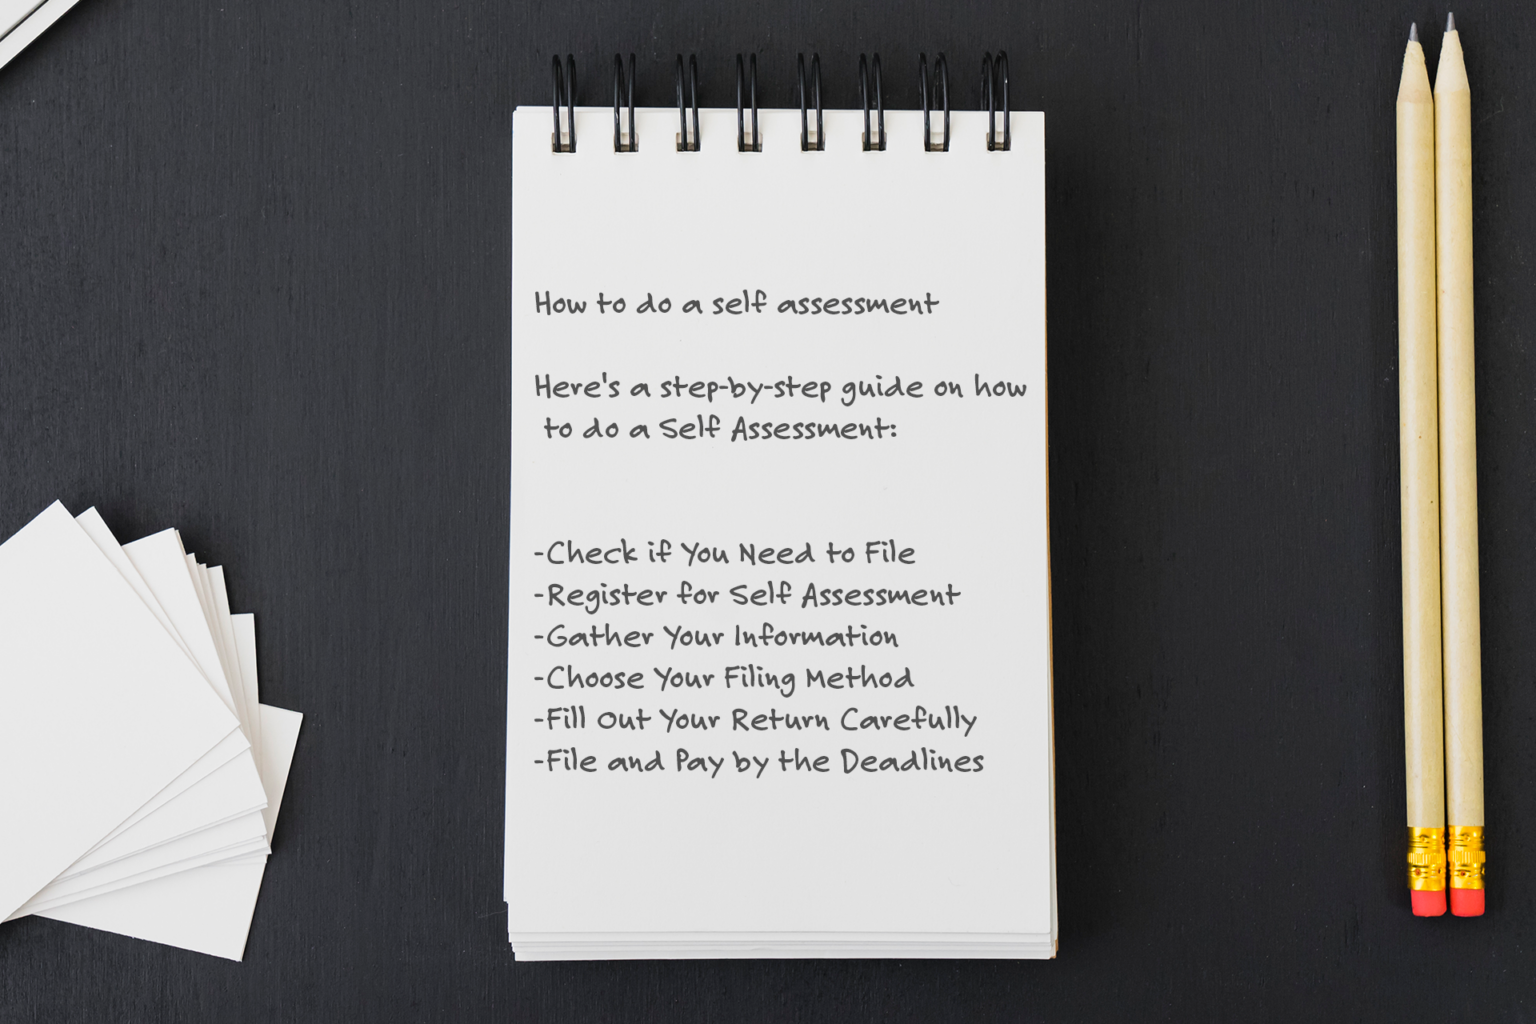 How to do a self assessment
Here's a step-by-step guide on how
to do a Self Assessment:
-Check if You Need to File
-Register for Self Assessment
-Gather Your Information
-Choose Your Filing Method
-Fill Out Your Return Carefully
-File and Pay by the Deadlines